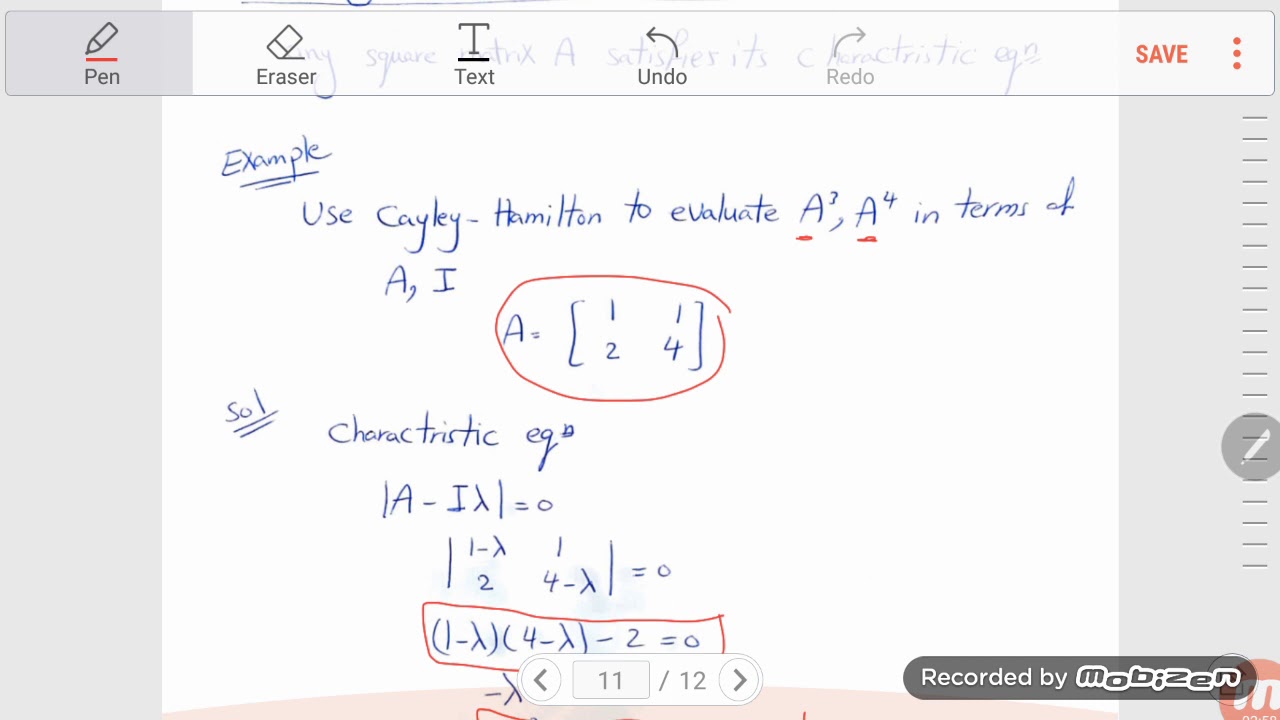 Pen
Eraser
Text
Undo
Redo
SAVE
square matrix A satisfies its charactristic eqn
Example
Use Cayley-Hamilton to evaluate A³, A⁴ in terms of
A, I
A= [ 1 1
2 4 ]
Sol
Charactristic eqn
|A - Iλ| = 0
| 1-λ 1
2 4-λ | = 0
(1-λ)(4-λ) - 2 = 0
-λ
11 / 12
Recorded by mobizen